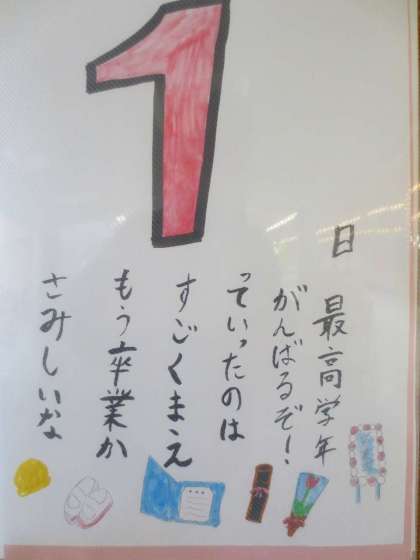 1
日
最高学年
がんばるぞ!
っていったのは
すごくまえ
もう卒業か
さみしいな